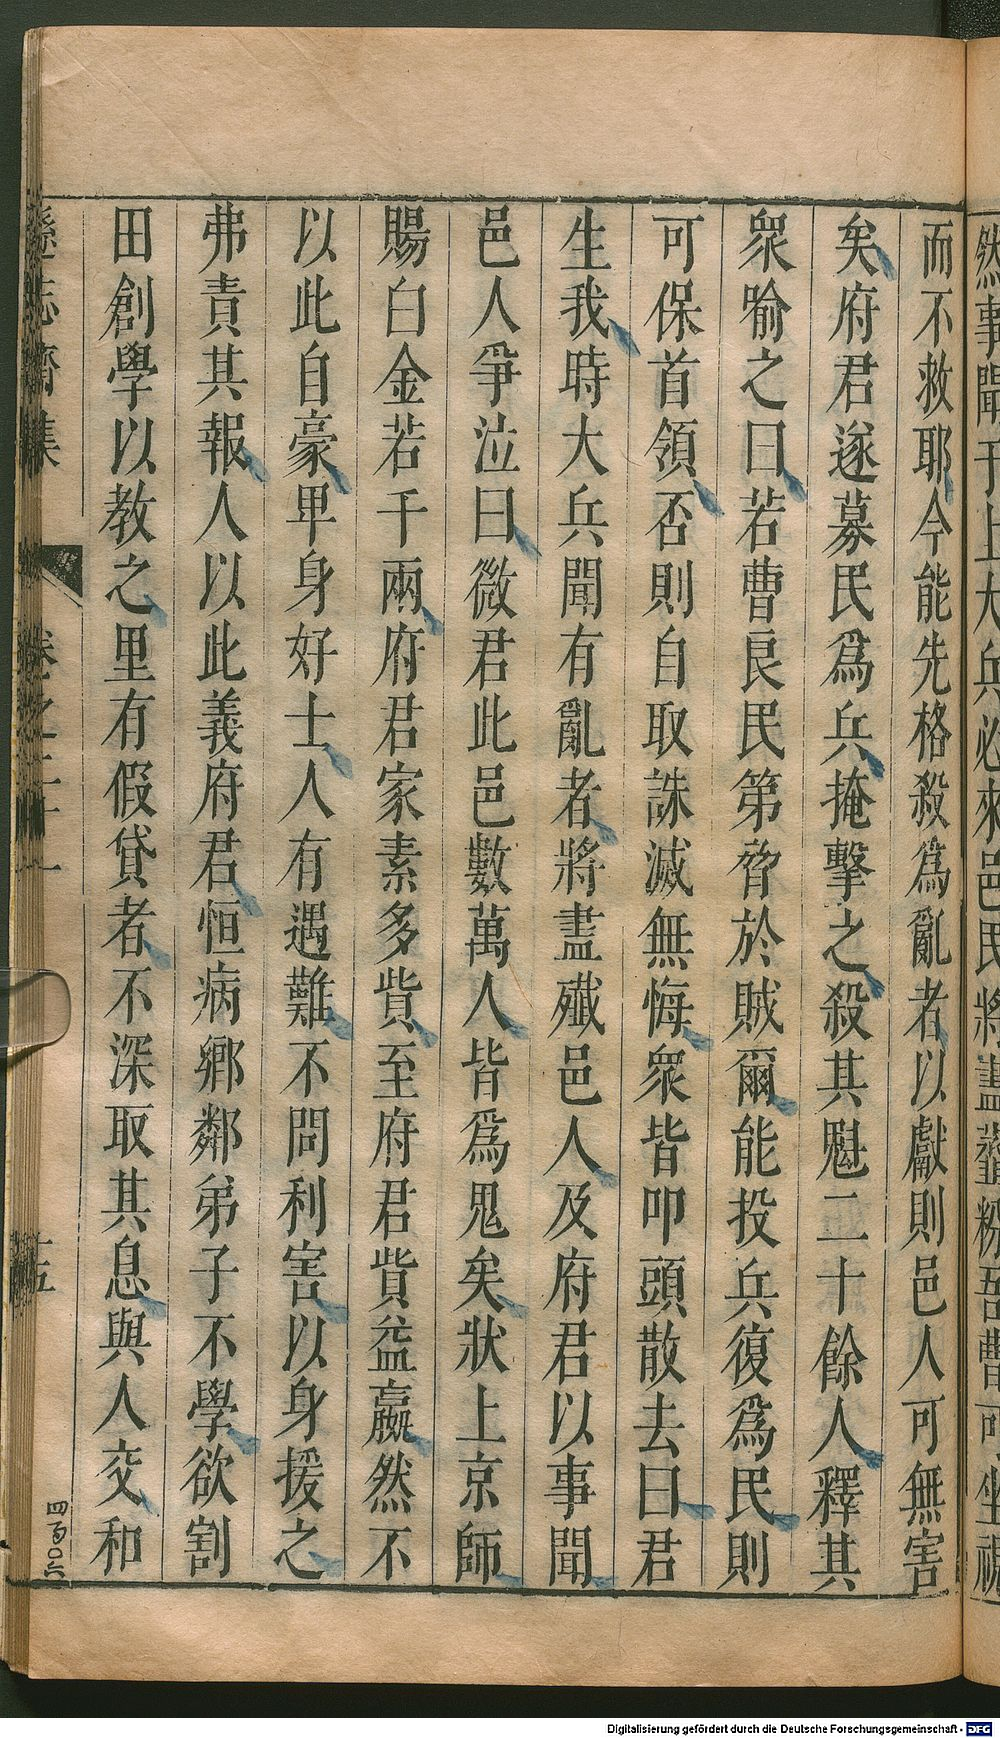 然事聞于上大兵必來邑民將盡虀粉吾曹可坐視
而不救耶今能先格殺爲亂者以獻則邑人可無害
矣府君遂募民爲兵掩擊之殺其魁二十餘人釋其
衆喻之曰若曹良民第脅於賊爾能投兵復爲民則
可保首領否則自取誅滅無悔衆皆叩頭散去曰君
生我時大兵聞有亂者將盡殱邑人及府君以事聞
邑人爭泣曰微君此邑數萬人皆爲鬼矣狀上京師
賜白金若干兩府君家素多貲至府君貲益嬴然不
以此自豪卑身好士人有遇難不問利害以身援之
弗責其報人以此義府君恒病鄉鄰弟子不學欲割
田創學以教之里有假貸者不深取其息與人交和
遜志齋集 卷之二十一 十五
四百〇六
Digitalisierung gefördert durch die Deutsche Forschungsgemeinschaft - DFG